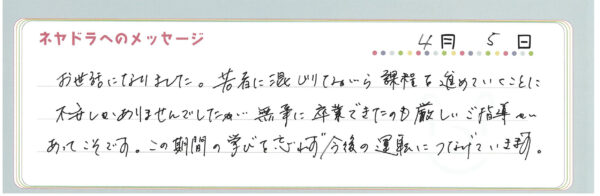 ネヤドラへのメッセージ
4月 5日
お世話になりました。若者に混じりながら課程を進めていくことに
不安しかありませんでしたが無事に卒業できたのも厳しいご指導が
あってこそです。この期間の学びを忘れず今後の運転につなげていきます。